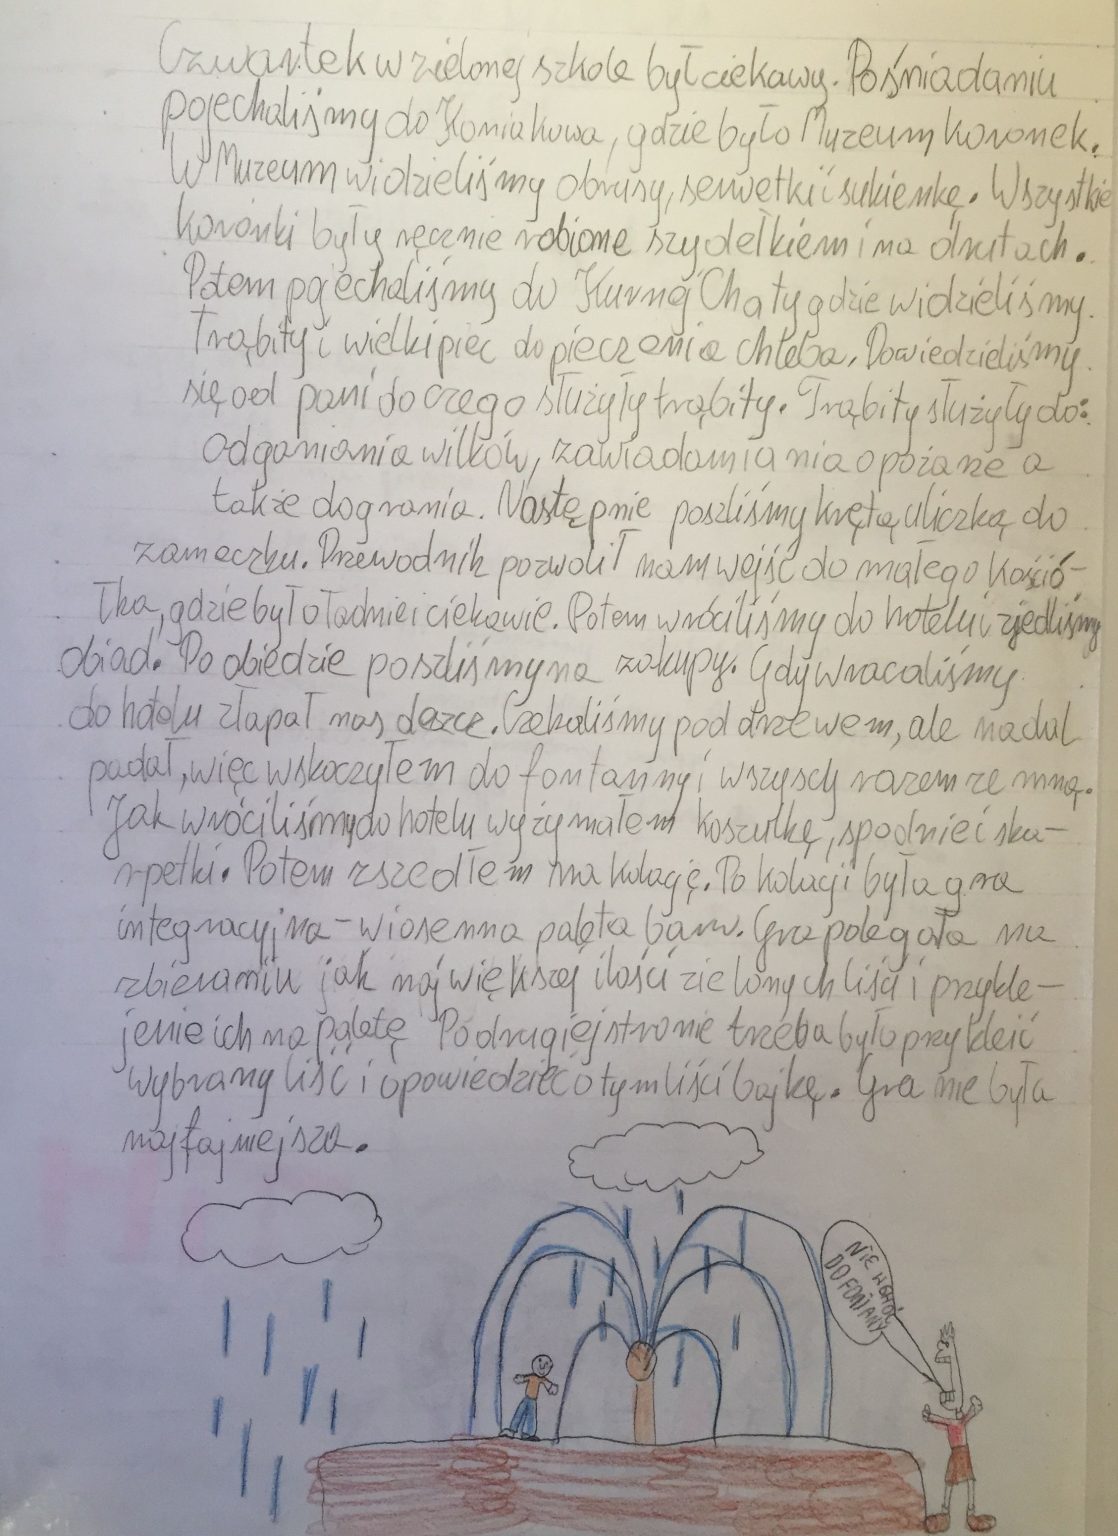 Czwartek w zielonej szkole był ciekawy. Po śniadaniu
pojechaliśmy do Koniakowa, gdzie było Muzeum koronek.
W Muzeum widzieliśmy obrusy, serwetki i sukienkę. Wszystkie
koronki były ręcznie robione szydełkiem i na drutach.
Potem pojechaliśmy do Kurnej Chaty gdzie widzieliśmy
Trąbity i wielki piec do pieczenia chleba. Dowiedzieliśmy
się od pani do czego służyły trąbity. Trąbity służyły do:
odganiania wilków, zawiadamiania o pożarze a
także do grania. Następnie poszliśmy krętą uliczką do
zameczku. Przewodnik pozwolił nam wejść do małego kośció-
łka, gdzie było ładnie i ciekawie. Potem wróciliśmy do hotelu i zjedliśmy
obiad. Po obiedzie poszliśmy na zakupy. Gdy wracaliśmy
do hotelu złapał nas deszcz. Czekaliśmy pod drzewem, ale nadal
padał, więc wskoczyłem do fontanny i wszyscy razem ze mną.
Jak wróciliśmy do hotelu wyżymałem koszulkę, spodnie i ska-
rpetki. Potem zszedłem na kolację. Po kolacji była gra
integracyjna - wiosenna paleta barw. Gra polegała na
zbieraniu jak największej ilości zielonych liści i przykle-
jenie ich na paletę Po drugiej stronie trzeba było przykleić
wybrany liść i opowiedzieć o tym liści bajkę. Gra nie była
najfajniejsza.
NIE WCHOĆ
DO FONTANY